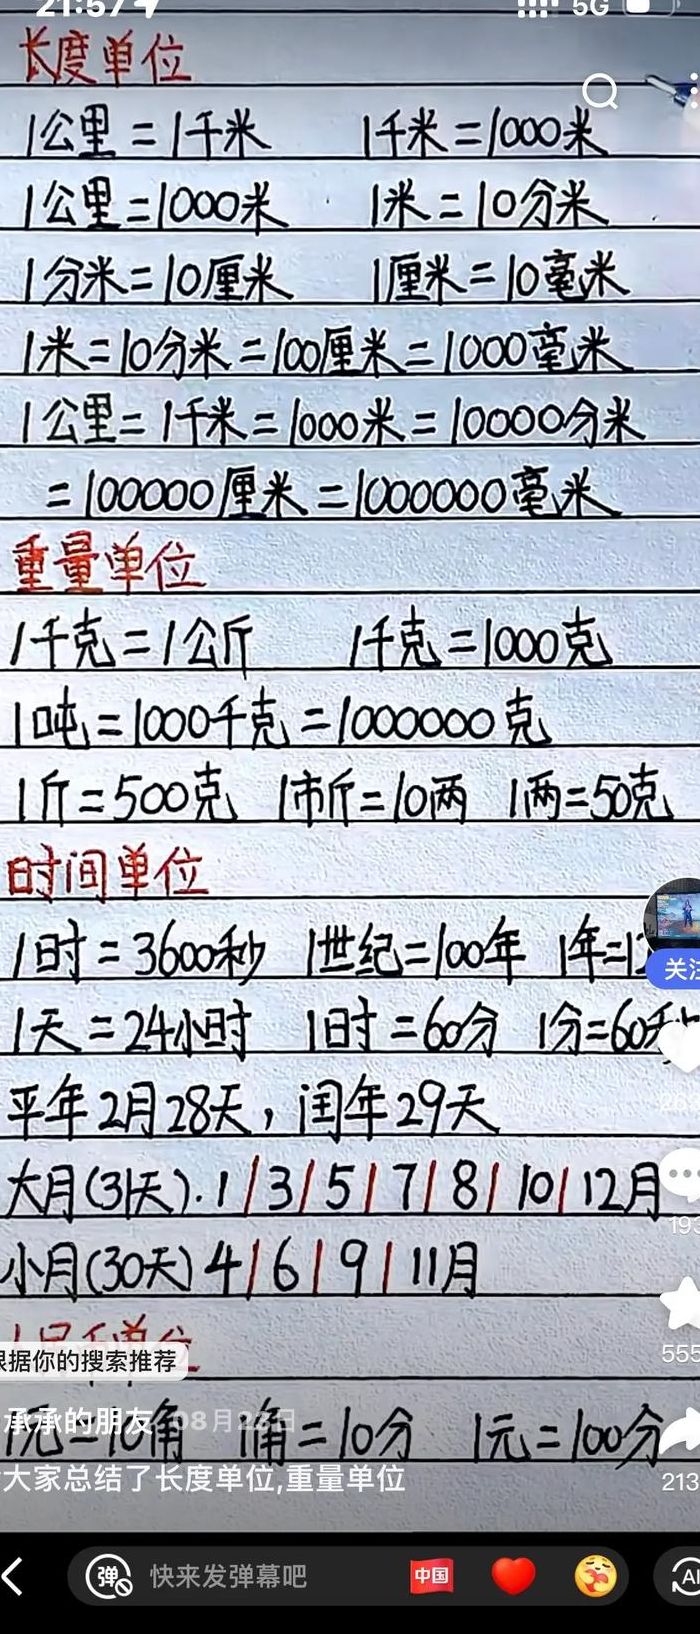 21:57
5G
长度单位
1公里=1千米 1千米=1000米
1公里=1000米 1米=10分米
1分米=10厘米 1厘米=10毫米
1米=10分米=100厘米=1000毫米
1公里=1千米=1000米=10000分米
=100000厘米=1000000毫米
重量单位
1千克=1公斤 1千克=1000克
1吨=1000千克=1000000克
1斤=500克 1市斤=10两 1两=50克
时间单位
1时=3600秒 1世纪=100年 1年=12
关注
1天=24小时 1时=60分 1分=60秒
平年2月28天，闰年29天
大月(31天).1/3/5/7/8/10/12月
193
小月(30天)4/6/9/11月
单位
555
根据你的搜索推荐
承承的朋友 08月23日
1元=10角 1角=10分 1元=100分
大家总结了长度单位,重量单位
213
弹 快来发弹幕吧 中国 AI